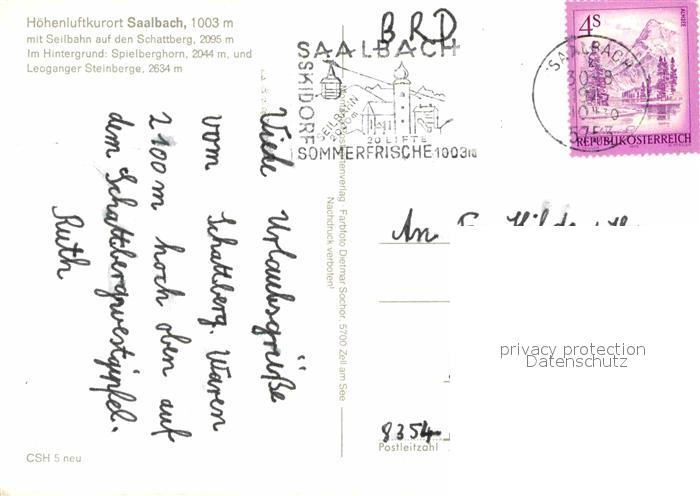 Höhenluftkurort Saalbach, 1003 m
mit Seilbahn auf den Schattberg, 2095 m
Im Hintergrund: Spielberghorn, 2044 m, und
Leoganger Steinberge, 2634 m
BRD
SAALBACH
SKIDORF
SEILBAHN
20 LIFTE
SOMMERFRISCHE 1003m
4S
ALMSEE
REPUBLIK ÖSTERREICH
SAALBACH
5753
Viele Urlaubsgrüße
vom Schattberg. Waren
2100 m hoch oben auf
dem Schattbergwestgipfel.
Ruth
Farbfoto Dietmar Sochor, 5700 Zell am See
Nachdruck verboten!
An
privacy protection
Datenschutz
8354
Postleitzahl
CSH 5 neu